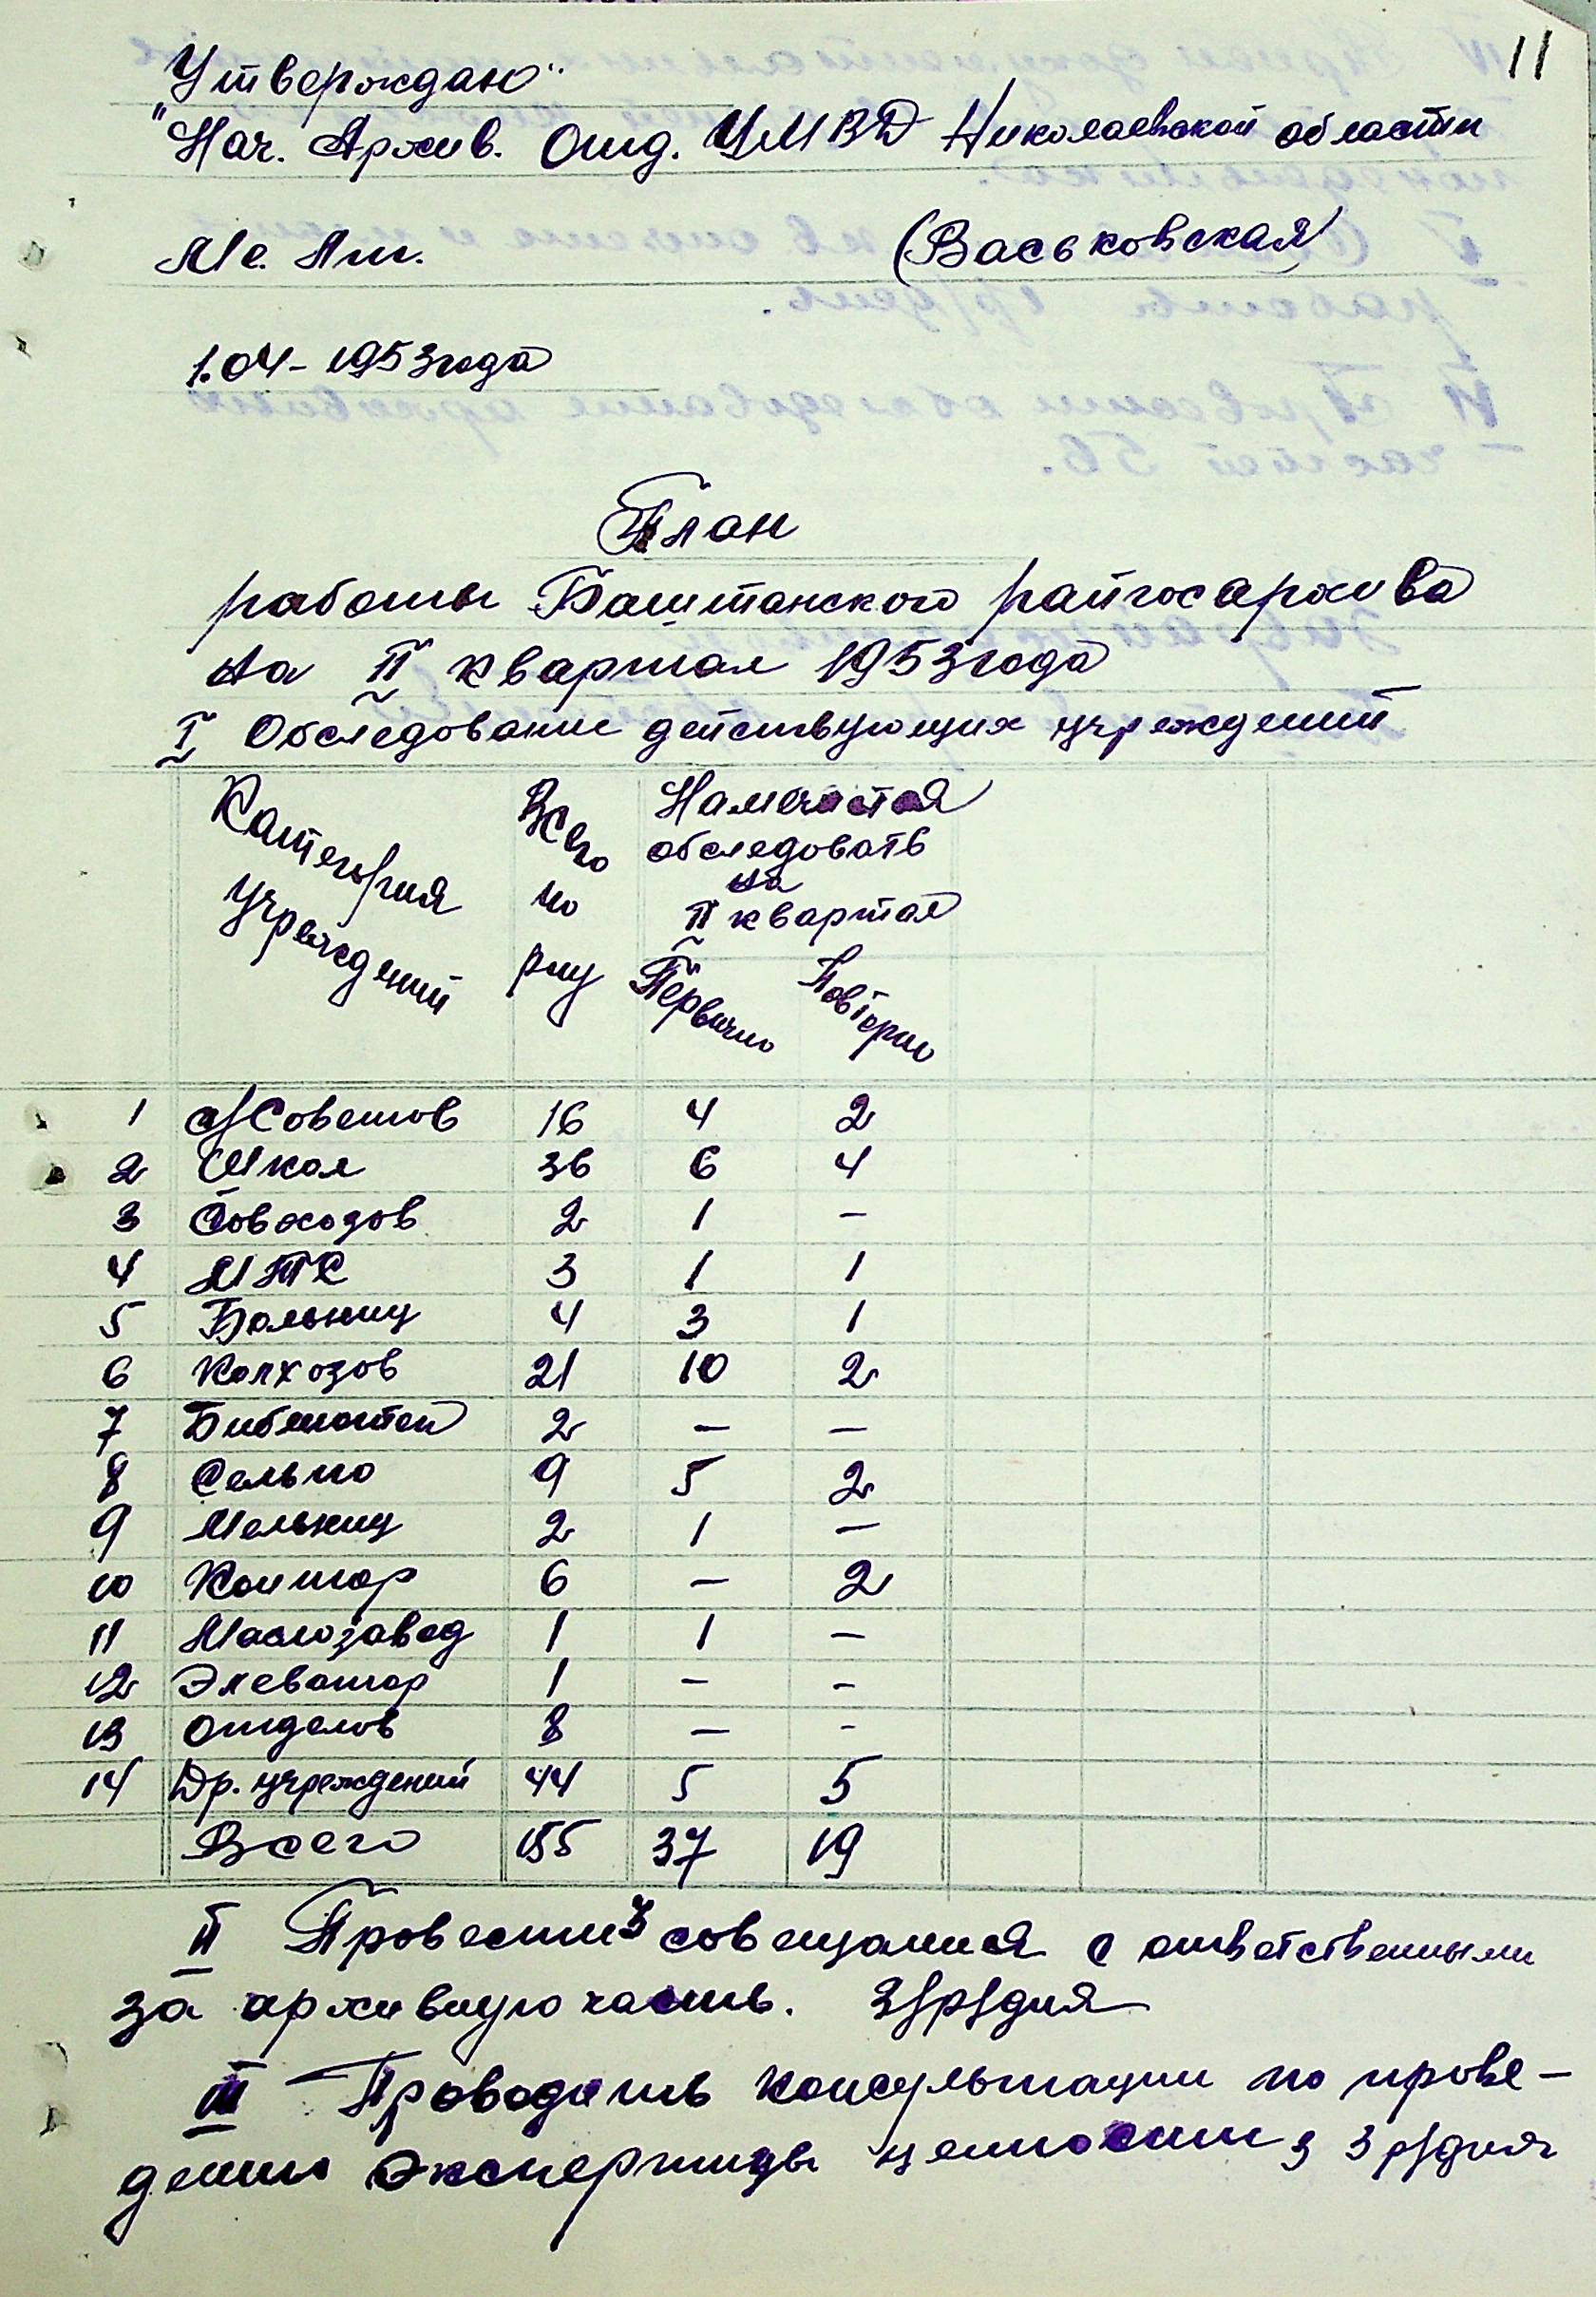 11
"Утверждаю"
Нач. Архив. Отд. УМВД Николаевской области
Мл. Лт. (Васьковская)
1.04-1953 года
План
работы Баштанского райгосархива
на II квартал 1953 года
I Обследование действующих учреждений
Категория учреждений | Всего по р-ну | Намечается обследовать на II квартал
Первично | Повторно
1 с/Советов 16 4 2
2 Школ 36 6 4
3 Совхозов 2 1 —
4 МТС 3 1 1
5 Больниц 4 3 1
6 Колхозов 21 10 2
7 Библиотек 2 — —
8 Сельпо 9 5 2
9 Мельниц 2 1 —
10 Контор 6 — 2
11 Маслозавод 1 1 —
12 Элеватор 1 — -
13 Отделов 8 — -
14 Др. учреждений 44 5 5
Всего 155 37 19
II Провести 3 совещания с ответственными
за архивную часть. 3/р/дня
III Проводить консультации по прове-
дению экспертизы ценности 3 р/дня